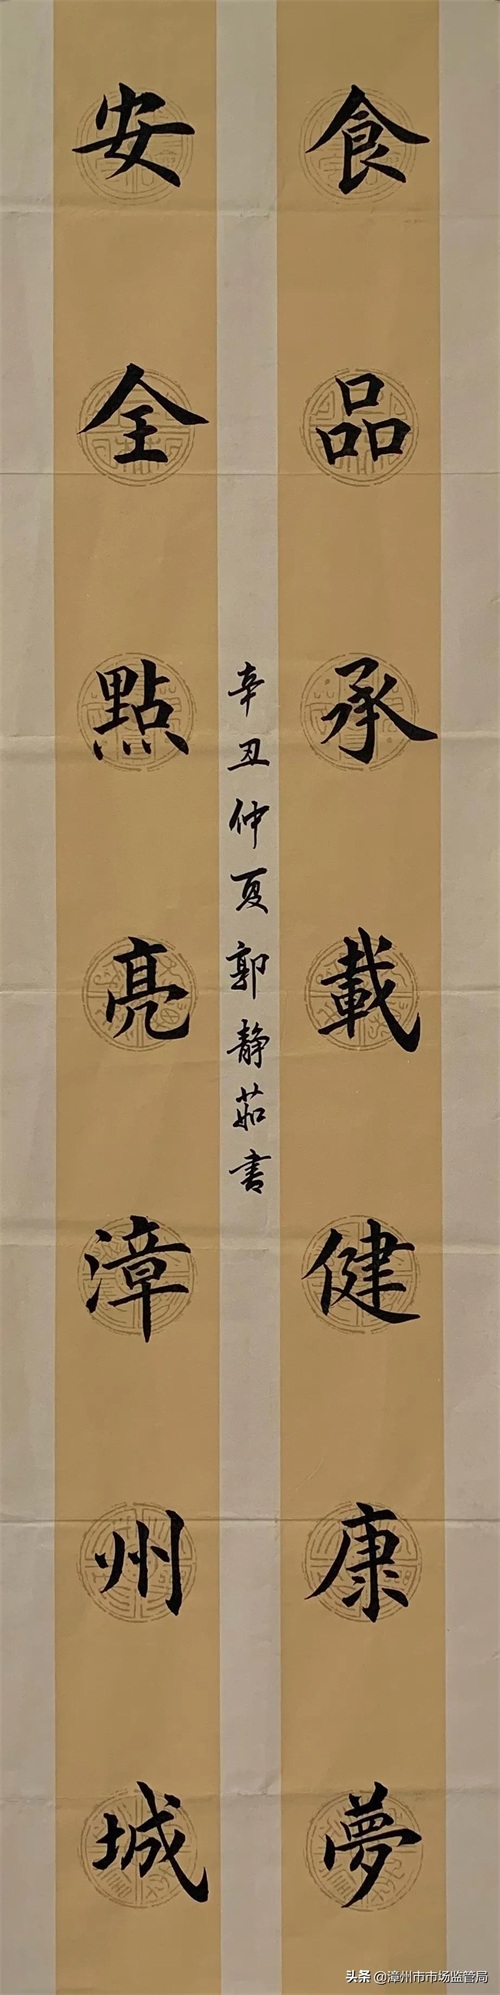 食品承載健康夢
安全點亮漳州城
辛丑仲夏郭静茹書
头条 @漳州市市场监管局